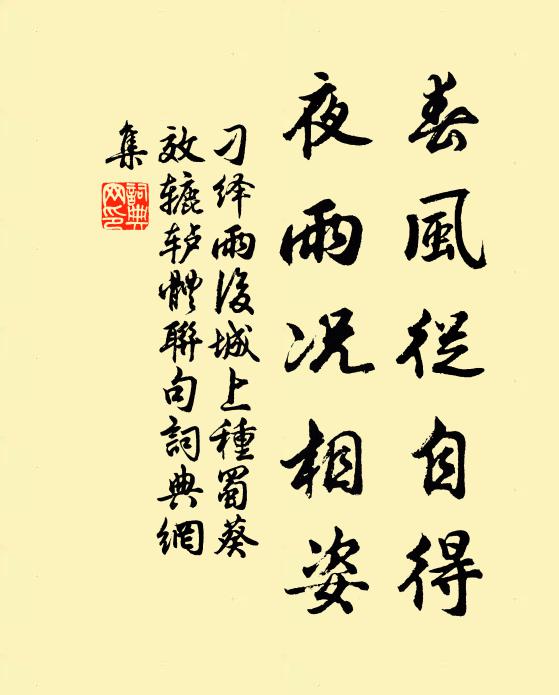 春風從自得
夜雨况相姿
刁绎雨後城上種蜀葵
效辘轳體聯句詞典網
集
詞典
网印